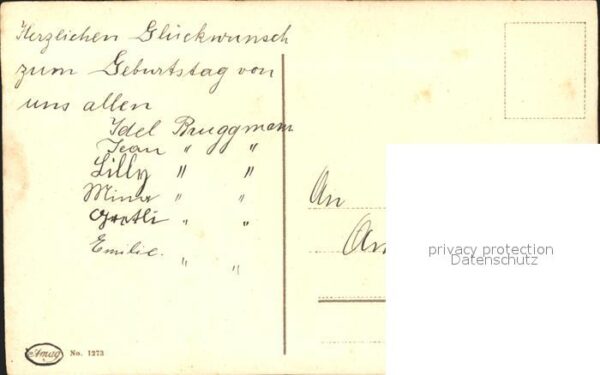 Herzlichen Glückwunsch
zum Geburtstag von
uns allen
Idel Bruggmann
Jean " "
Lilly " "
Mina " "
Gretli " "
Emilie. " "
An
An
privacy protection
Datenschutz
Amag No. 1273